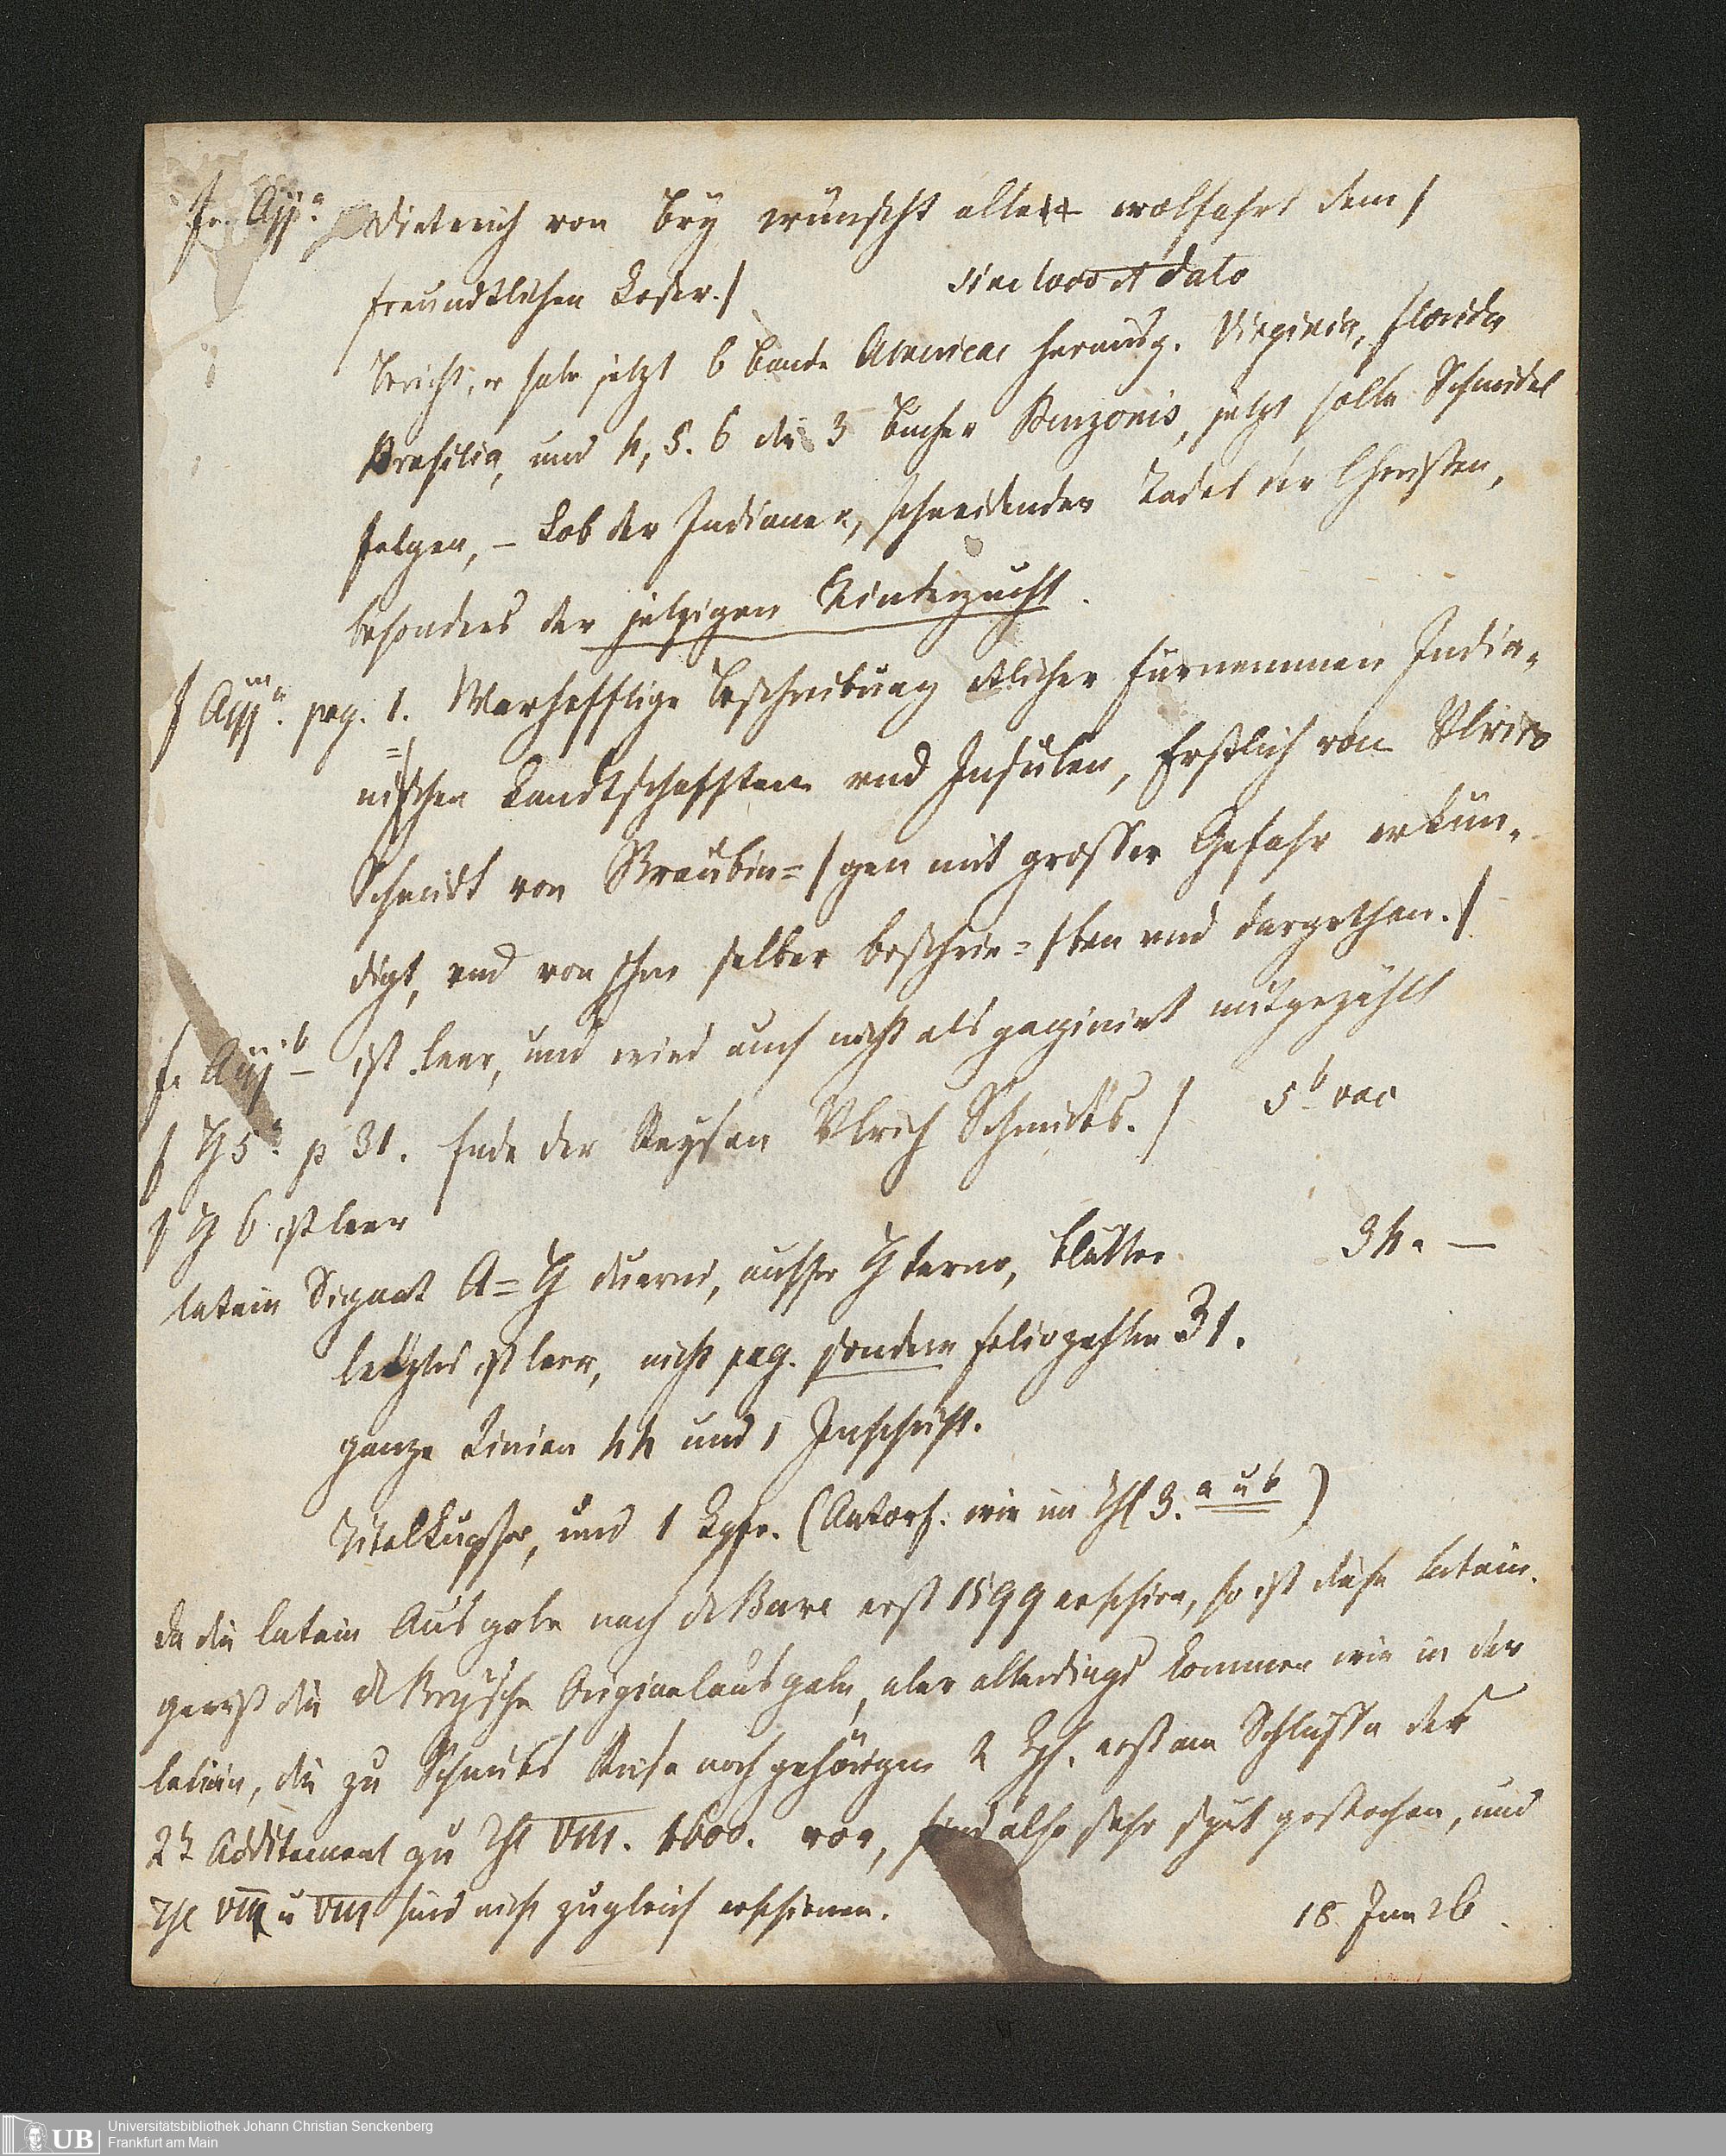 f. Aij.a Dietrich von Bry wünscht alle wolfahrt dem /
freundtlichen Leser. / sine loco et dato
Bericht, er habe jetzt 6 Bande Americae herausg. Virginia, Florida
Brasilia, und 4, 5. 6 die 3 Bücher Benzonis, jetzt solle Schmidel
folgen, – Lob der Indianer, schneidender Tadel der Christen,
besonders der jetzigen Kinderzucht.
f Aiij a. pag. 1. Warhafftige Beschreibung etlicher fürnemmen India-
nischen Landtschafften vnd Insulen, Erstlich von Vlrico
Schmidt von Straubin= / gen mit grosser Gefahr erkün-
digt, vnd von jhm selber beschrie= / ben vnd dargethan. /
f. Aiij b ist leer, und wird auch nicht als paginirt mitgezählt
f H5 a p 31. Ende der Reysen Vlrich Schmidts. / 5 b vac
f H 6 ist leer
latein Signat A = H duerni, ausser H terno, Blätter 34. —
letztes ist leer, nicht pag. sondern foliozahlen 31.
ganze Linien 44 und 1 Inschrift.
Titelkupfer, und 1 Kpfr. (Antorf. wie im Thl 3. a u b)
Da die latein Ausgabe nach de Bure erst 1599 erschien, so ist diese latein.
gewiß die de Brysche Originalausgabe, aber allerdings kommen wie in der
latein, die zu Schmids Reise noch gehörigen 2 Kpf. erst am Schlusse des
2t Additament zu Thl VIII. 1600. vor, sind also sehr spät gestochen, und
Thl VII u VIII sind nicht zugleich erschienen. 18 Jun 26.
UB
Universitätsbibliothek Johann Christian Senckenberg
Frankfurt am Main